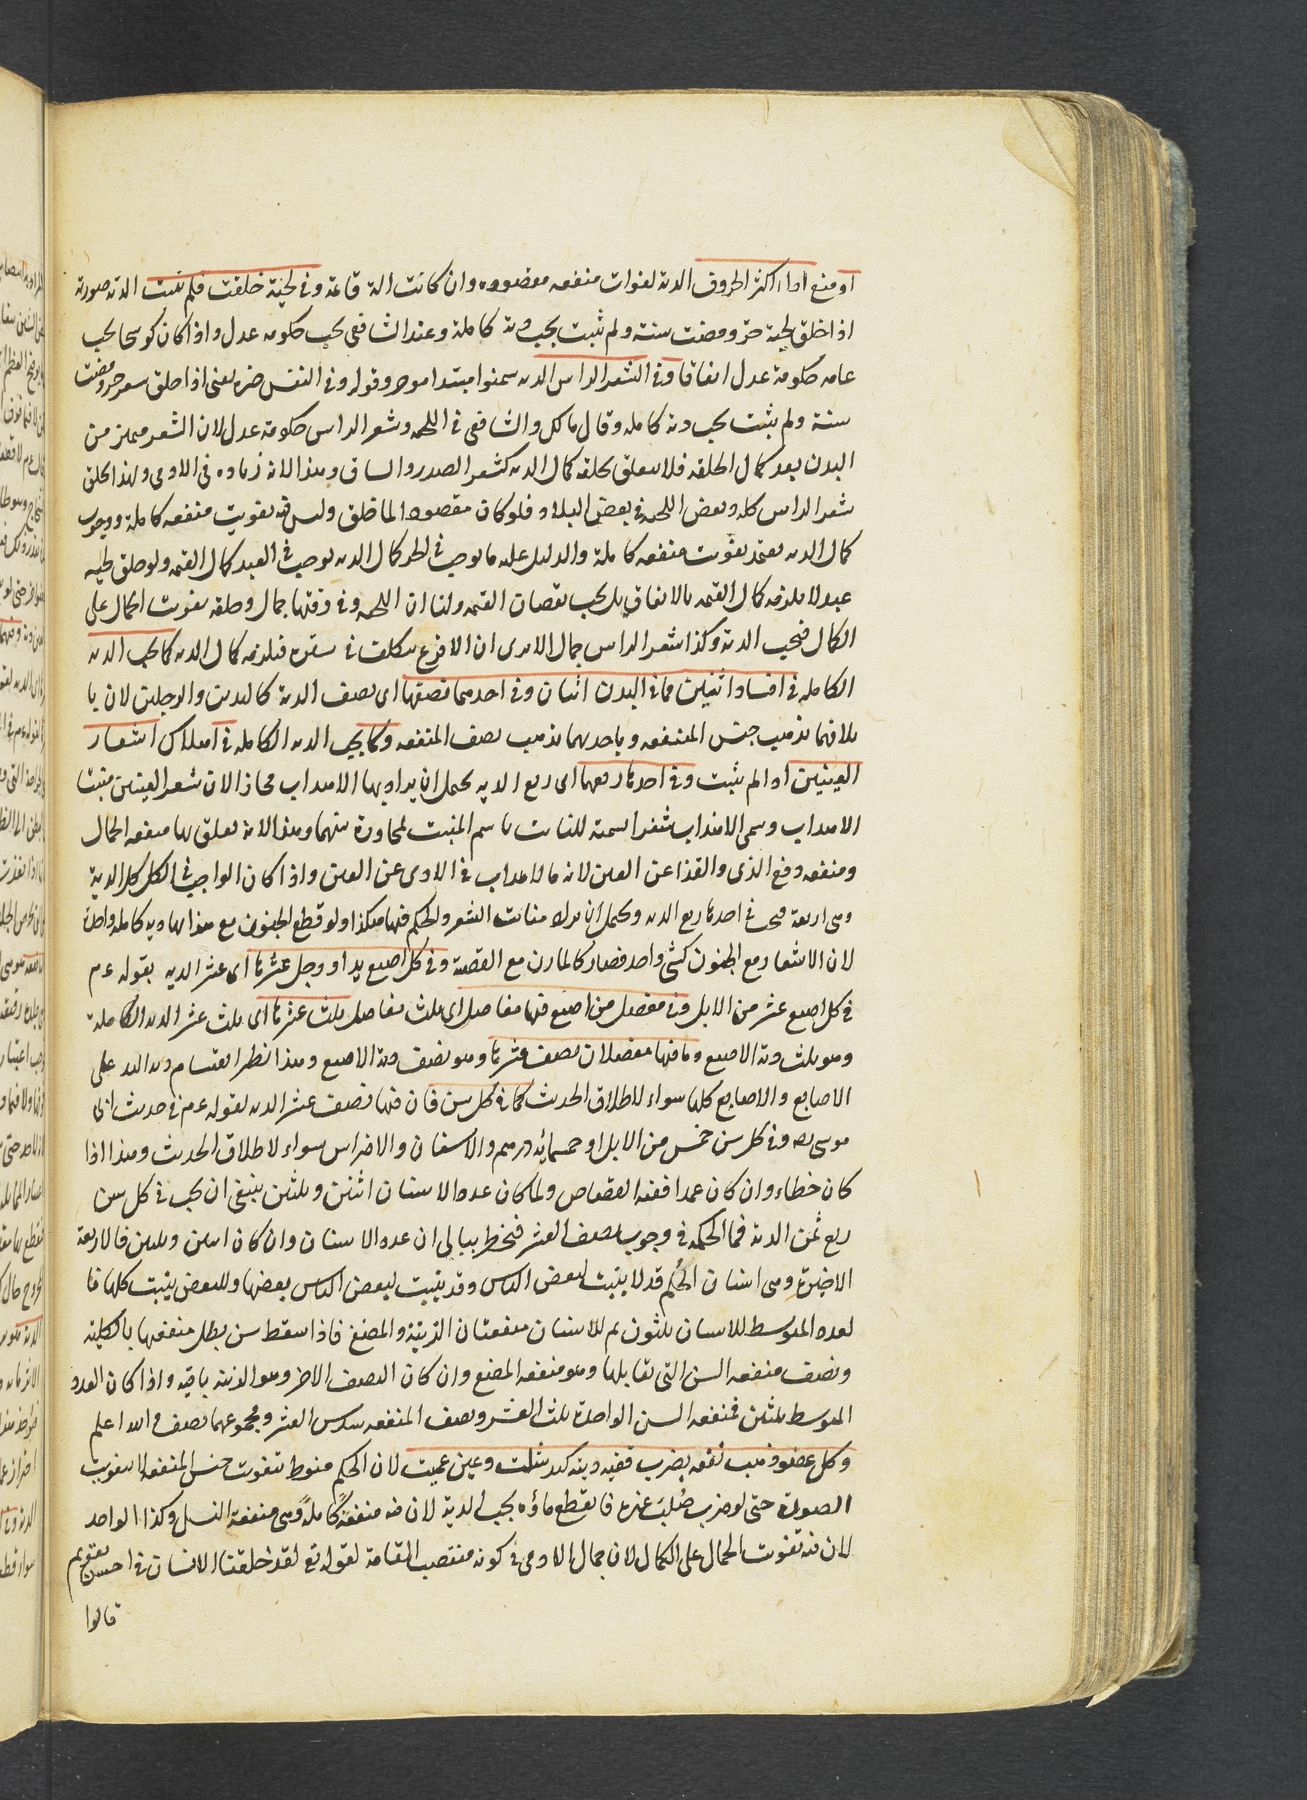 او منع اداء اكثر الحروف الدية لفوات منفعه مقصوده وان كانت الة قاعة وفى لحية حلقت فلم تنبت الدية صورته
اذا حلق لحية حر ومضت سنة ولم تنبت يجب دية كاملة وعند الشافعى يجب حكومه عدل واذا كان كوسجا يجب
عامه حكومة عدل اتفاقا وفى الشعر الراس الديه هنوا مبتدا موخر وقوله وفى النفس خبره يعنى اذا حلق شعر حر ومضت
سنة ولم ينبت يجب دية كامله وقال مالك والشافعى فى اللحيه وشعر الراس حكومة عدل لان الشعر من
البدن بعد كمال الخلقه فلا يتعلق بحلقه كمال الديه كشعر الصدر والساق وهذا لانه زياده فى الادمى ولهذا يحلق
شعر الراس كله وبعض اللحيه فى بعض البلاد فلو كان مقصودا لما حلق وليس فيه تفويت منفعه كاملة ووجوب
كمال الديه يعتمد تفويت منفعه كاملة والدليل عليه ما يوجب فى الحر كمال الديه يوجب فى العبد كمال القيمه ولو حلق لحيه
عبد لا يلزمه كمال القيمه بالاتفاق بل يجب نقصان القيمه ولنا ان اللحيه وفى وقتها جمال وحلقه يفوت الجمال على
الكمال فتجب الدية وكذا شعر الراس جمال الا يرى ان الاقرع يتكلف فى ستره فيلزمه كمال الديه كما يجب الديه
الكامله فى افساد اثنين مما فى البدن اثنان وفى احدهما نصفها اى نصف الدية كاليدين والرجلين لان با
تلافهما يذهب جنس المنفعه وباحديهما يذهب نصف المنفعه وكما يجب الديه الكامله فى اهلاك اشعار
العينين اذا لم تنبت وفى احدها ربعها اى ربع الديه يحتمل ان يراد بها الاهداب مجازا لان شعر العينين منبت
الاهداب وسمى الاهداب شعرا تسمية للنابت باسم المنبت لمجاورة بينهما وهذا لانه تعلق بها منفعه الجمال
ومنفعه دفع الاذى والقذا عن العين لانه بالاهداب فى الاذى عن العين واذا كان الواجب فى الكل كل الدية
وهى اربعة يجب فى احدها ربع الديه ويحتمل ان يراد منابت الشعر والحكم فيها هكذا ولو قطع الجفون مع هدابها دية كامله واحدة
لان الاشعار مع الجفون كشىء واحد فصار كالمارن مع القصبة وفى كل اصبع يد او رجل عشرها اى عشر الديه بقوله عم
فى كل اصبع عشر من الابل وفى مفصل من اصبع فيها مفاصل اى ثلث مفاصل ثلث عشرها اى ثلث عشر الديه الكاملة
وهو ثلث دية الاصبع وما فيها مفصلان نصف عشرها وهو نصف دية الاصبع وهذا نظير انقسام دية اليد على
الاصابع والاصابع كلها سواء لاطلاق الحديث كما فى كل سن فان فيها نصف عشر الديه لقوله عم فى حديث ابى
موسى رضه وفى كل سن خمس من الابل او خمسمائه درهم والاسنان والاضراس سواء لاطلاق الحديث وهذا اذا
كان خطاء وان كان عمدا ففيه القصاص ولما كان عدد الاسنان اثنين وثلثين ينبغى ان يجب فى كل سن
ربع ثمن الدية فما الحكمة فى وجوب نصف العشر فيخطر ببالى ان عدد الاسنان وان كان اثنين وثلثين فالاربعة
الاخيرة وهى اسنان الحلم قد لا ينبت لبعض الناس وقد ينبت لبعض الناس بعضها وللبعض ينبت كلها فا
لعدد المتوسط للاسنان ثلثون ثم للاسنان منفعتان الزينة والمضغ فاذا سقط سن بطل منفعتها بالكلية
ونصف منفعه السن التى تقابلها وهو منفعه المضغ وان كان النصف الاخر وهو الزينة باقيه واذا كان العدد
المتوسط ثلثين فمنفعه السن الواحدة ثلث العشر ونصف المنفعه سدس العشر ومجموعهما نصف والله اعلم
وكل عضو ذهب نفعه بضرب ففيه ديته كيد شلت وعين عميت لان الحكم منوط بتفويت جنس المنفعه لا تفويت
الصورة حتى لو ضرب صُلبَ غيره فانقطع ماؤه يجب الدية لان فيه منفعةً كاملةً وهى منفعة النسل وكذا الواحد
لان فيه تفويت الجمال على الكمال لان جمال الادمى فى كونه منتصب القامة لقوله تع لقد خلقنا الانسان فى احسن تقويم
قالوا